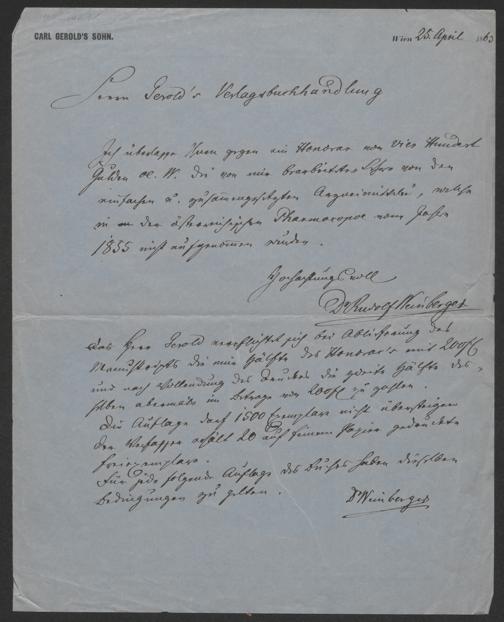 CARL GEROLD'S SOHN.
Wien 25. April 1863
Herrn Gerold's Verlagsbuchhandlung
Ich überlasse Ihnen gegen ein Honorar von vier Hundert
Gulden oe. W. die von mir bearbeitete Lehre von den
einfachen u. zusammengesetzten Arzneimitteln, welche
in der österreichischen Pharmacopoe vom Jahre
1855 nicht aufgenommen wurden.
Hochachtungsvoll
Dr Rudolf Weinberger
Das Herr Gerold verpflichtet sich bei Ablieferung des
Manuscripts die eine Hälfte des Honorar's mit 200 fl
und nach Vollendung des Druckes die zweite Hälfte des-
selben abermals im Betrage von 200 fl zu zahlen.
Die Auflage darf 1500 Exemplare nicht übersteigen
Der Verfasser erhält 20 auf feinem Papier gedruckte
Freiexemplare.
Für jede folgende Auflage des Buches haben dieselben
Bedingungen zu gelten.
Dr Weinberger